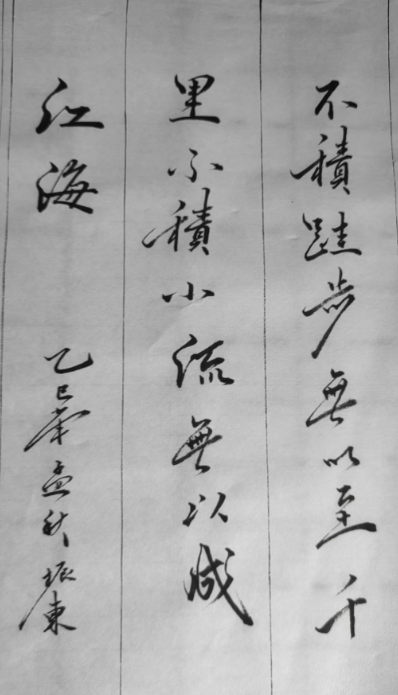 不積跬步無以至千
里不積小流無以成
江海
乙巳年孟秋振東